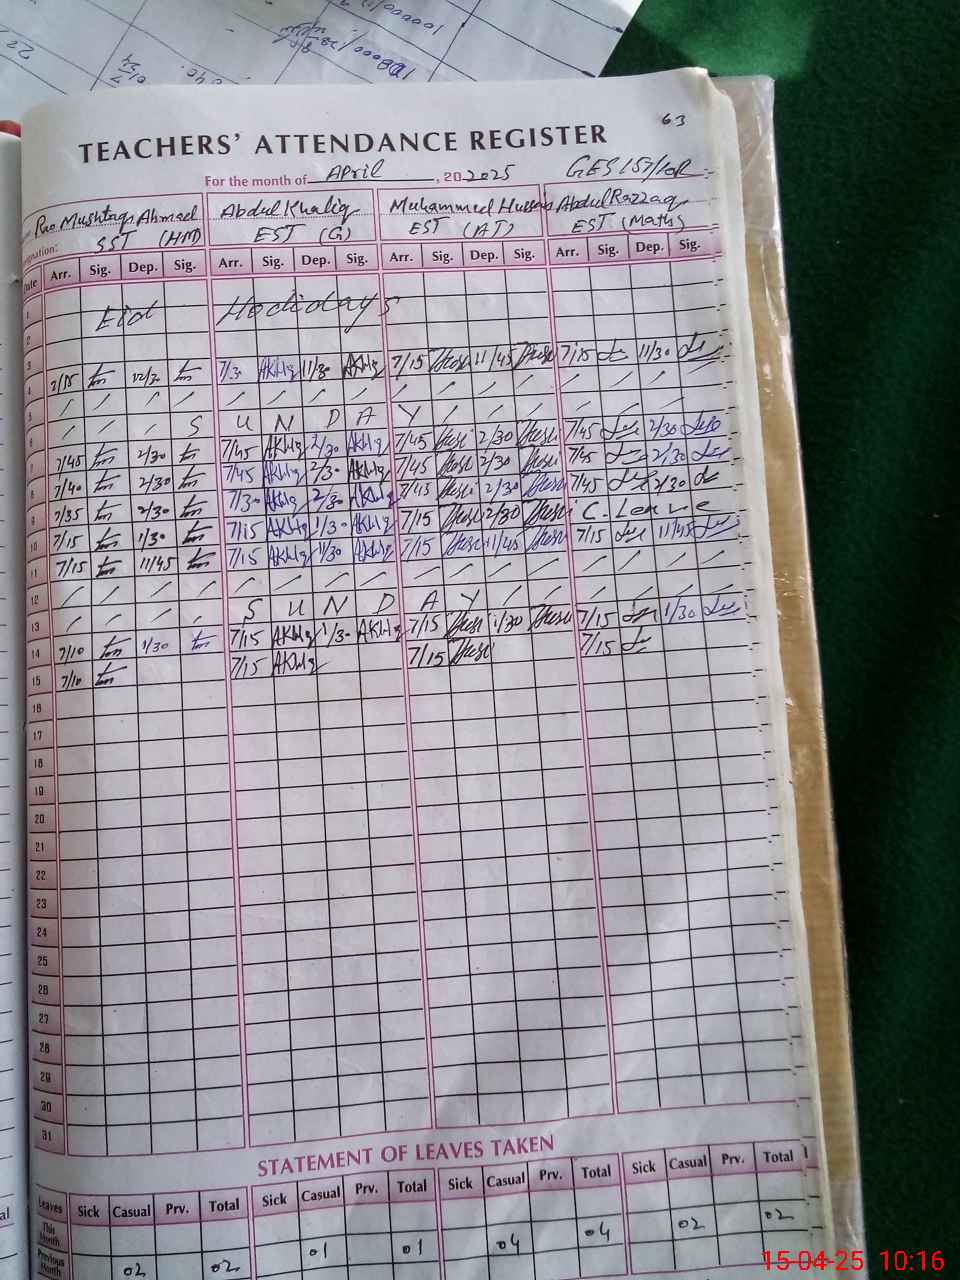 63
TEACHERS' ATTENDANCE REGISTER
For the month of April, 20 2025 GES 157/10R
Rao Mushtaq Ahmad Abdul Khaliq Muhammad Hussain Abdul Razzaq
SST (HM) EST (G) EST (AT) EST (Maths)
Date Arr. Sig. Dep. Sig. Arr. Sig. Dep. Sig. Arr. Sig. Dep. Sig. Arr. Sig. Dep. Sig.
1 Eid Holidays
2
3
4 7/15 12/30 7/30 AKhlq 11/30 AKhlq 7/15 11/45 7/15 11/30
5
6 S U N D A Y
7 7/45 2/30 7/45 AKhlq 2/30 AKhlq 7/45 2/30 7/45 2/30
8 7/40 2/30 7/45 AKhlq 2/30 AKhlq 7/45 2/30 7/45 2/30
9 7/35 2/30 7/30 AKhlq 2/30 AKhlq 7/45 2/30 7/45 2/30
10 7/15 1/30 7/15 AKhlq 1/30 AKhlq 7/15 2/30 C. Leave
11 7/15 11/45 7/15 AKhlq 1/30 AKhlq 7/15 11/45 7/15 11/45
12
13 S U N D A Y
14 7/10 1/30 7/15 AKhlq 1/30 AKhlq 7/15 1/30 7/15 1/30
15 7/10 7/15 AKhlq 7/15 7/15
16
17
18
19
20
21
22
23
24
25
26
27
28
29
30
31
STATEMENT OF LEAVES TAKEN
Leaves Sick Casual Prv. Total Sick Casual Prv. Total Sick Casual Prv. Total Sick Casual Prv. Total
This Month
Previous Month 02 02 01 01 04 04 02 02
15-04-25 10:16